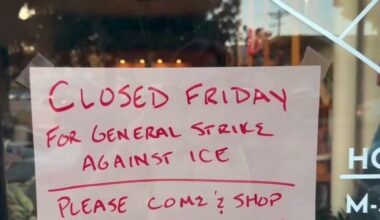 CLOSED FRIDAY
FOR GENERAL STRIKE
AGAINST ICE
PLEASE COME & SHOP
HO
M-